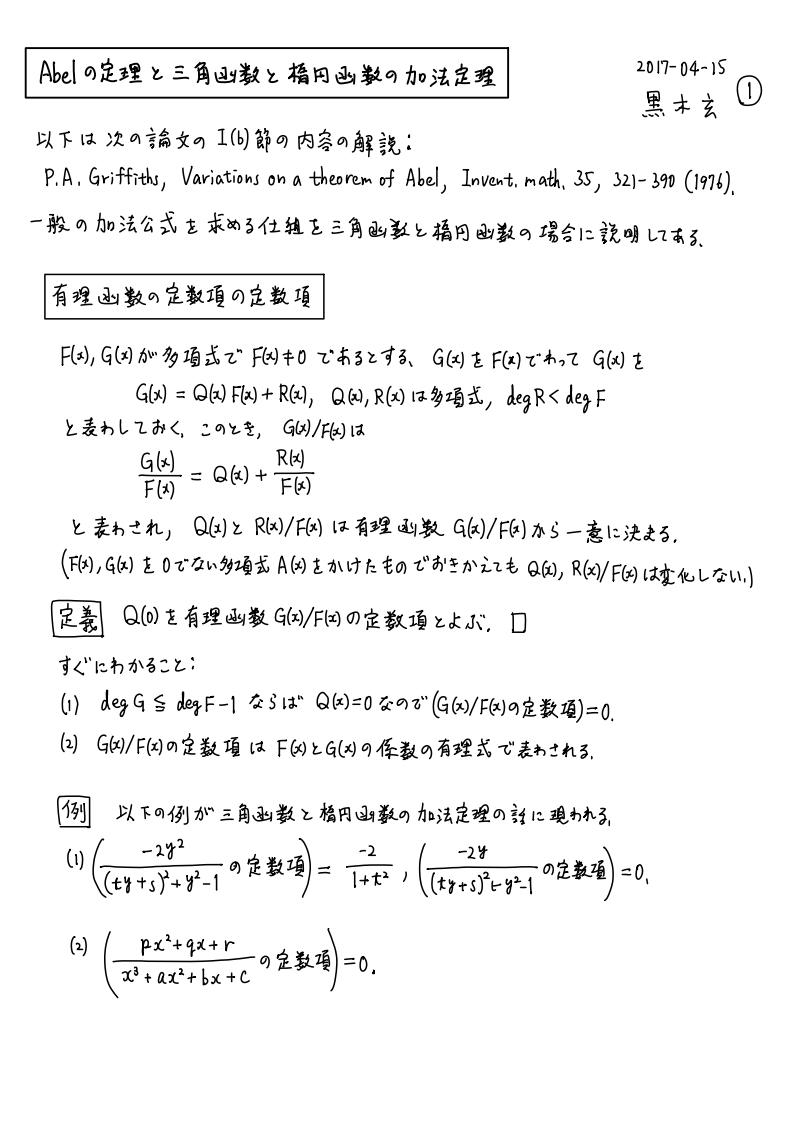 Abelの定理と三角函数と楕円函数の加法定理
2017-04-15 ①
黒木玄
以下は次の論文のI(b)節の内容の解説:
P.A. Griffiths, Variations on a theorem of Abel, Invent. math. 35, 321-390 (1976).
一般の加法公式を求める仕組を三角函数と楕円函数の場合に説明してある.
有理函数の定数項の定数項
F(x), G(x)が多項式で F(x)≠0 であるとする. G(x)をF(x)でわって G(x)を
G(x) = Q(x)F(x)+R(x), Q(x), R(x)は多項式, deg R < deg F
と表わしておく. このとき, G(x)/F(x)は
G(x)/F(x) = Q(x) + R(x)/F(x)
と表わされ, Q(x)とR(x)/F(x)は有理函数 G(x)/F(x)から一意に決まる.
(F(x), G(x)を0でない多項式A(x)をかけたものでおきかえても Q(x), R(x)/F(x)は変化しない.)
定義 Q(0)を有理函数G(x)/F(x)の定数項とよぶ. □
すぐにわかること:
(1) deg G ≦ deg F-1 ならば Q(x)=0なので(G(x)/F(x)の定数項)=0.
(2) G(x)/F(x)の定数項は F(x)とG(x)の係数の有理式で表わされる.
例 以下の例が三角函数と楕円函数の加法定理の話に現われる.
(1) (-2y²/((ty+s)²+y²-1) の定数項) = -2/(1+t²), (-2y/((ty+s)²+y²-1) の定数項) = 0.
(2) ((px²+qx+r)/(x³+ax²+bx+c) の定数項) = 0.